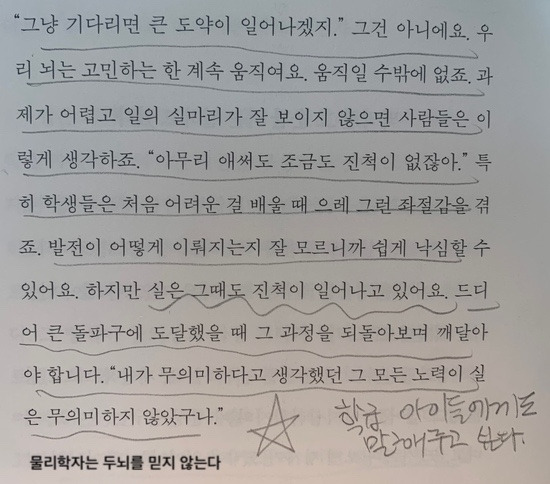 “그냥 기다리면 큰 도약이 일어나겠지.” 그건 아니에요. 우
리 뇌는 고민하는 한 계속 움직여요. 움직일 수밖에 없죠. 과
제가 어렵고 일의 실마리가 잘 보이지 않으면 사람들은 이
렇게 생각하죠. “아무리 애써도 조금도 진척이 없잖아.” 특
히 학생들은 처음 어려운 걸 배울 때 으레 그런 좌절감을 겪
죠. 발전이 어떻게 이뤄지는지 잘 모르니까 쉽게 낙심할 수
있어요. 하지만 실은 그때도 진척이 일어나고 있어요. 드디
어 큰 돌파구에 도달했을 때 그 과정을 되돌아보며 깨달아
야 합니다. “내가 무의미하다고 생각했던 그 모든 노력이 실
은 무의미하지 않았구나.”
학급 아이들에게도
말해주고 싶다.
물리학자는 두뇌를 믿지 않는다